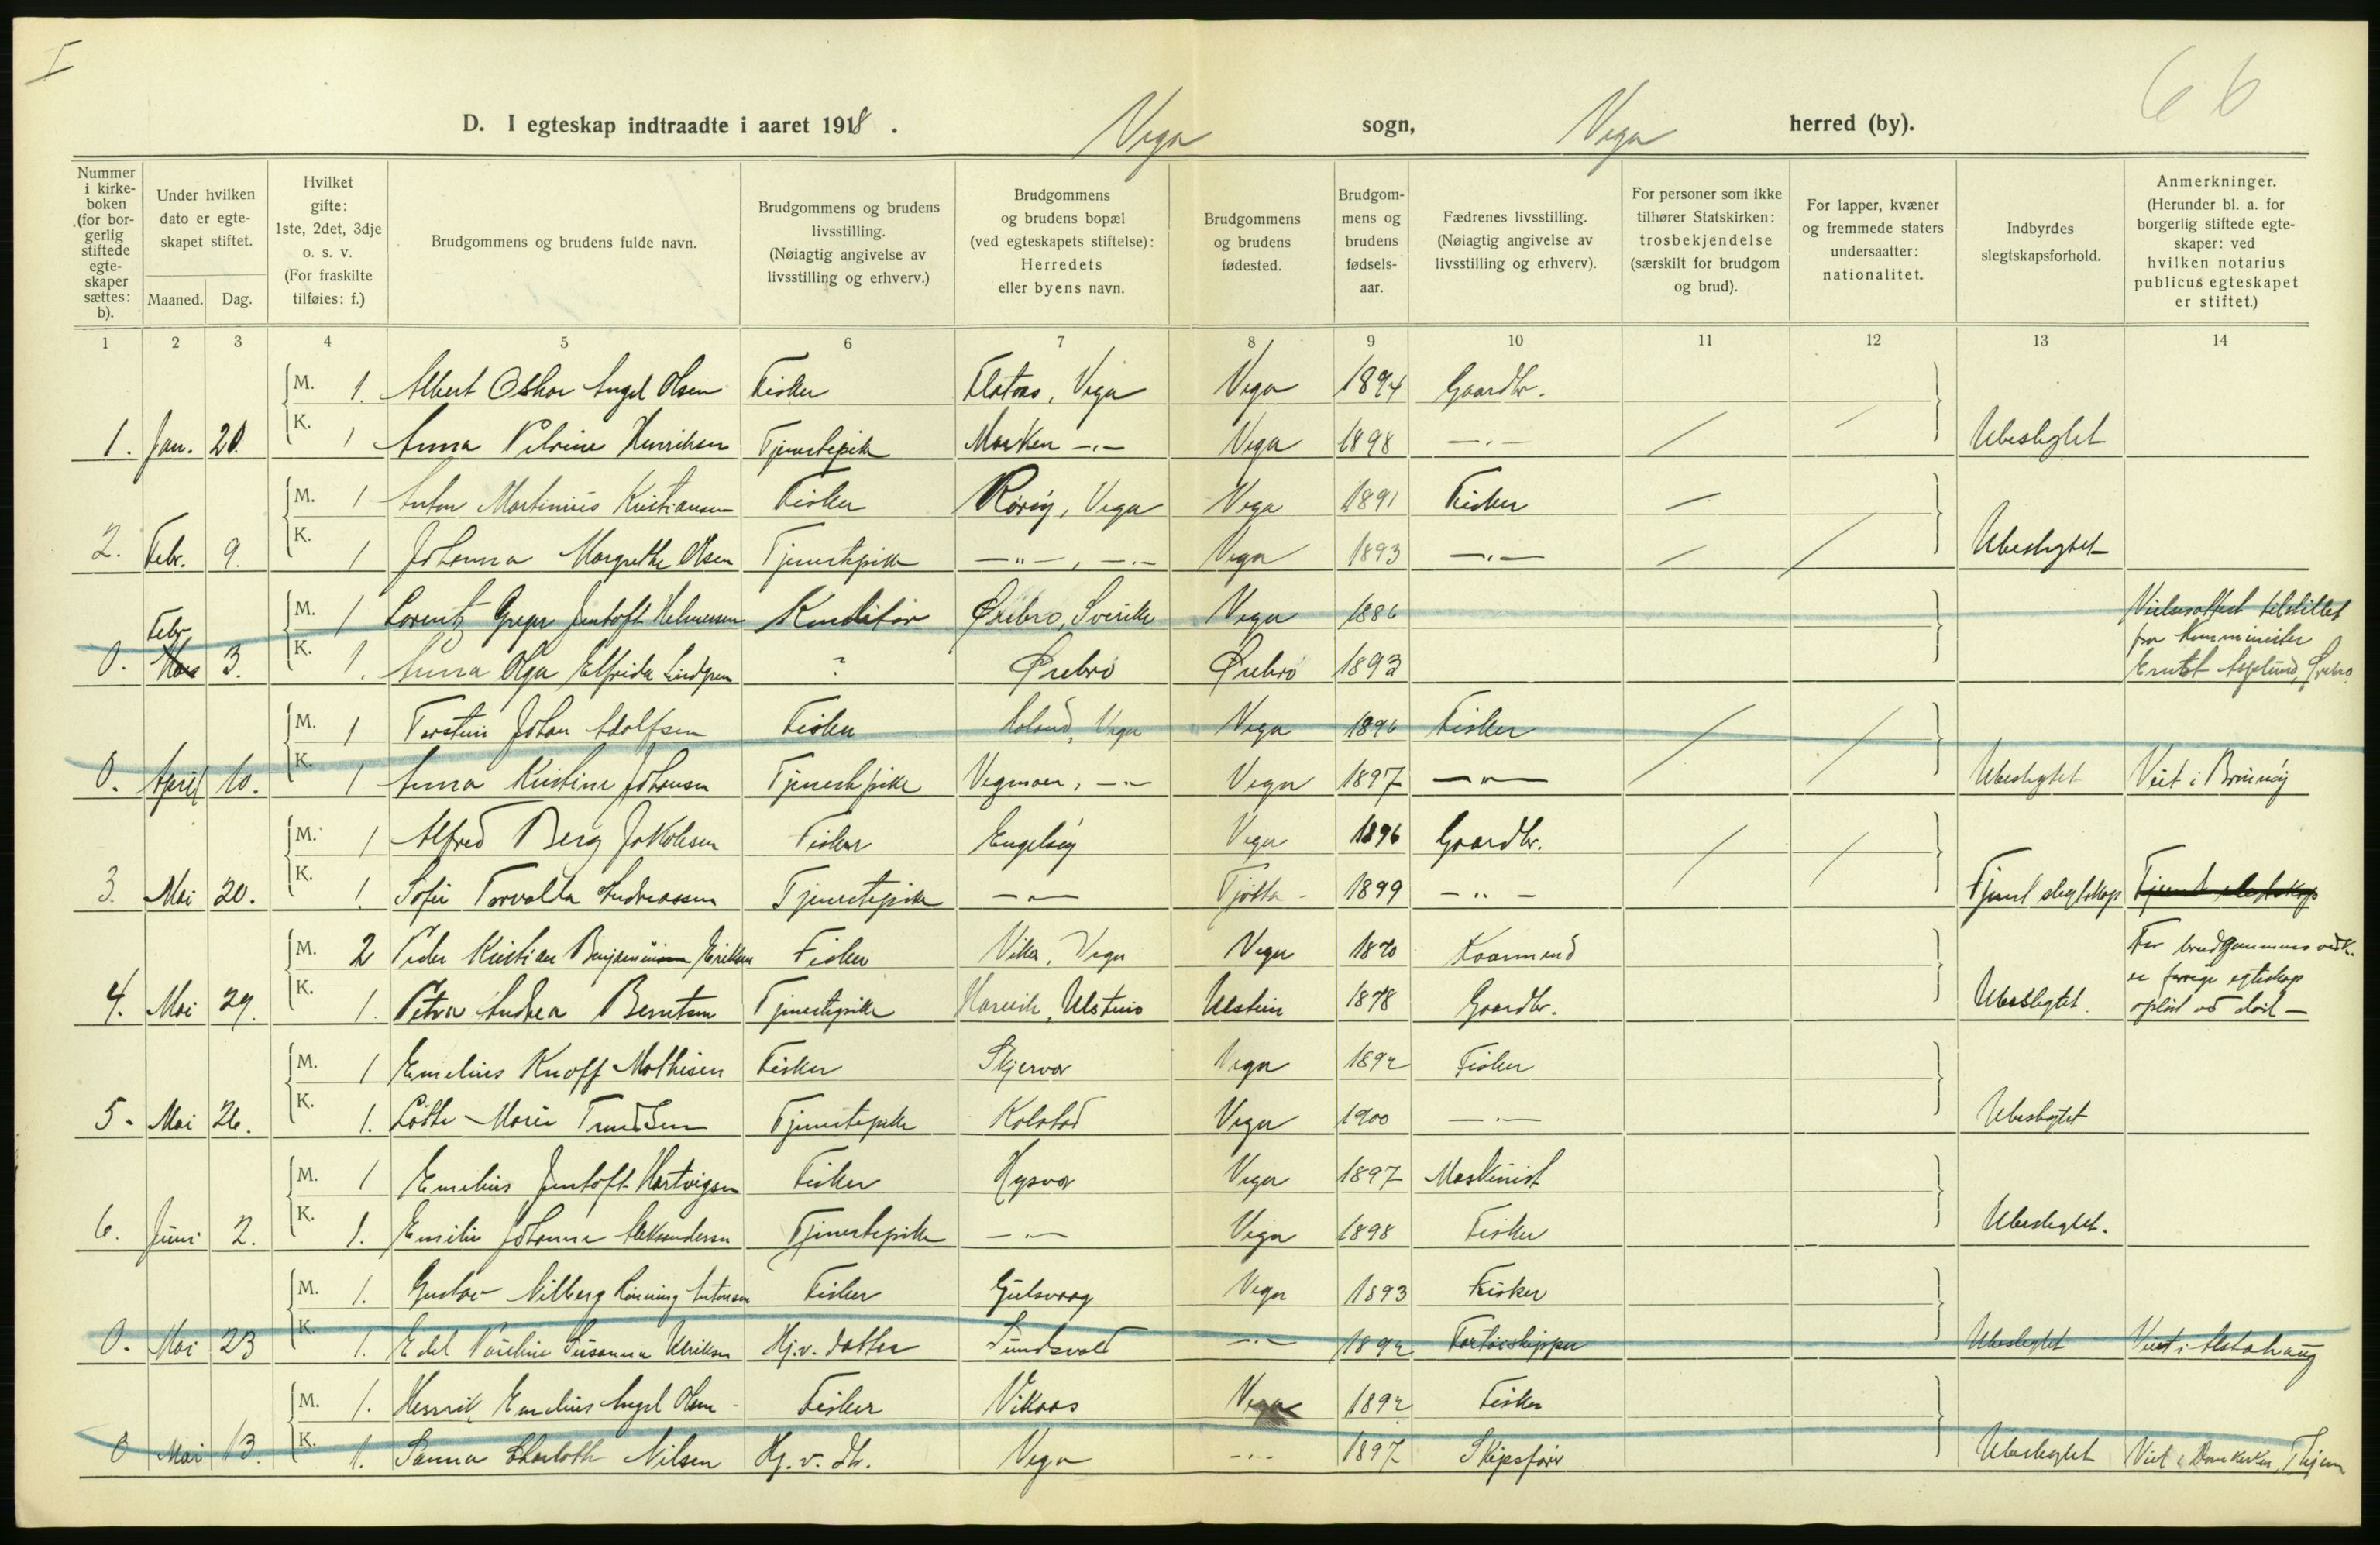 I
66
D. I egteskap indtraadte i aaret 1918. Vega sogn, Vega herred (by).
Nummer i kirkeboken (for borgerlig stiftede egteskaper sættes: b).
Under hvilken dato er egteskapet stiftet.
Maaned. Dag.
Hvilket gifte: 1ste, 2det, 3dje o. s. v. (For fraskilte tilføies: f.)
Brudgommens og brudens fulde navn.
Brudgommens og brudens livsstilling. (Nøiagtig angivelse av livsstilling og erhverv.)
Brudgommens og brudens bopæl (ved egteskapets stiftelse): Herredets eller byens navn.
Brudgommens og brudens fødested.
Brudgommens og brudens fødselsaar.
Fædrenes livsstilling. (Nøiagtig angivelse av livsstilling og erhverv).
For personer som ikke tilhører Statskirken: trosbekjendelse (særskilt for brudgom og brud).
For lapper, kvæner og fremmede staters undersaatter: nationalitet.
Indbyrdes slegtskapsforhold.
Anmerkninger. (Herunder bl. a. for borgerlig stiftede egteskaper: ved hvilken notarius publicus egteskapet er stiftet.)
1 2 3 4 5 6 7 8 9 10 11 12 13 14
M. 1. Albert Oskar Angel Olsen Fisker Flataas, Vega Vega 1894 Gaardbr.
1. Jan. 20. K. 1 Anna Petrine Henriksen Tjenestepike Marken -.- Vega 1898 -.- Ubeslegtet
M. 1 Anton Martinius Kristiansen Fisker Rørøy, Vega Vega 1891 Fisker
2. Febr. 9. K. 1 Johanna Margrethe Olsen Tjenestepike -"-, -.- Vega 1893 -.- Ubeslegtet
M. 1 Lorentz Greger Jentoft Helmersen Konditor Ørebro, Sverike Vega 1886 Vielsesattest tilstillet
fra Komminister
0. Febr. Mars 3. K. 1. Anna Olga Elfrida Lindgren ? Ørebro Ørebro 1893 Ernst Asplund, Ørebro
M. 1 Torstein Johan Adolfsen Fisker Vega Vega 1896 Fisker
0. April 10. K. 1 Anna Kristine Johansen Tjenestepike Vegmoen, -"- Vega 1897 -"- Ubeslegtet Viet i Brønnøy
M. 1 Alfred Berg Jakobsen Fisker Engeløy Vega 1896 Gaardbr.
3. Mai 20. K. 1. Sofie Torvalda Andreassen Tjenestepike -"- Tjøtta 1899 -"- Fjernt slegtskap Fjernt slegtskap
M. 2 Peder Kristian Benjaminsen Eriksen Fisker Vika, Vega Vega 1870 Kaarmand For brudgommens vedk.
er forrige egteskap
4. Mai 29. K. 1. Petra Andrea Berntsen Tjenestepike Hareide, Ulstein Ulstein 1878 Gaardbr. Ubeslegtet. opløst ved død -
M. 1 Emelius Knoff Mathisen Fisker Skjervær Vega 1892 Fisker
5. Mai 26. K. 1. Lotte Marie Trundsen Tjenestepike Kolstad Vega 1900 -.- Ubeslegtet
M. 1 Emelius Jentoft Hartvigsen Fisker Hysvær Vega 1897 Maskinist
6. Juni 2. K. 1. Emilie Johanne Aleksandersen Tjenestepike -.- Vega 1898 Fisker Ubeslegtet.
M. 1. Gustav Vilberg Rønning Antonsen Fisker Gulsvaag Vega 1893 Fisker
0. Mai 23 K. 1. Edel Pauline Susanna Ulriksen Hj.v. datter Sundsvold -.- 1892 Fartøiskipper Ubeslegtet Viet i Alstahaug
M. 1. Henrik Emelius Angel Olsen Fisker Vikaas Vega 1892 Fisker
0 Mai 13. K. 1. Sanna Charlotte Nilsen Hj.v. dtr. Vega -.- 1897 Skipsfører Ubeslegtet Viet i Domkirken, Thjem